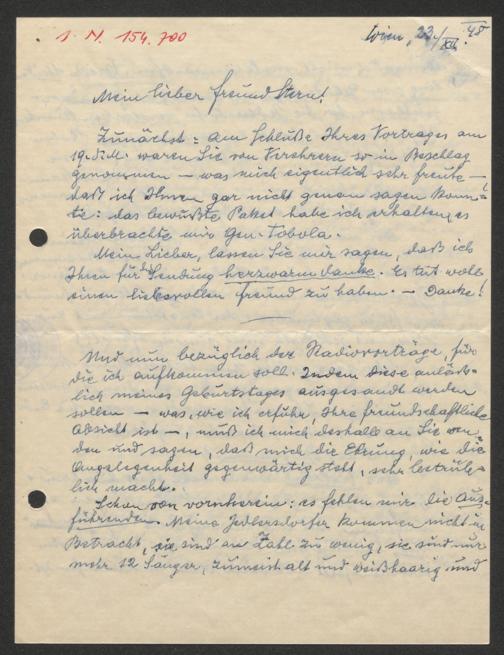 I. N. 154.700
Wien, 23./XII. 48
Mein lieber Freund Stern!
Zunächst: am Schluße Ihres Vortrages am
19. d. M. waren Sie von Verehrern so in Beschlag
genommen – was mich eigentlich sehr freute –
daß ich Ihnen gar nicht genau sagen konn-
te: das bewußte Paket habe ich erhalten, es
überbrachte mir Gen. Tobola.
Mein Lieber, lassen Sie mir sagen, daß ich
Ihnen für die Sendung herzwarm danke. Es tut wohl
einen liebevollen Freund zu haben. – Danke!
Und nun bezüglich der Radiovorträge, für
die ich aufkommen soll. Indem diese anläß-
lich meines Geburtstages ausgesandt werden
sollen – was, wie ich erfuhr, Ihre freundschaftliche
Absicht ist –, muß ich mich deshalb an Sie wen-
den und sagen, daß mich die Ehrung, wie die
Angelegenheit gegenwärtig steht, sehr betrüb-
lich macht.
Schon von vornherein: es fehlen mir die Aus-
führenden. Meine Jedlersdorfer kommen nicht in
Betracht, sie sind an Zahl zu wenig, sie sind nur
mehr 12 Sänger, zumeist alt und weißhaarig und